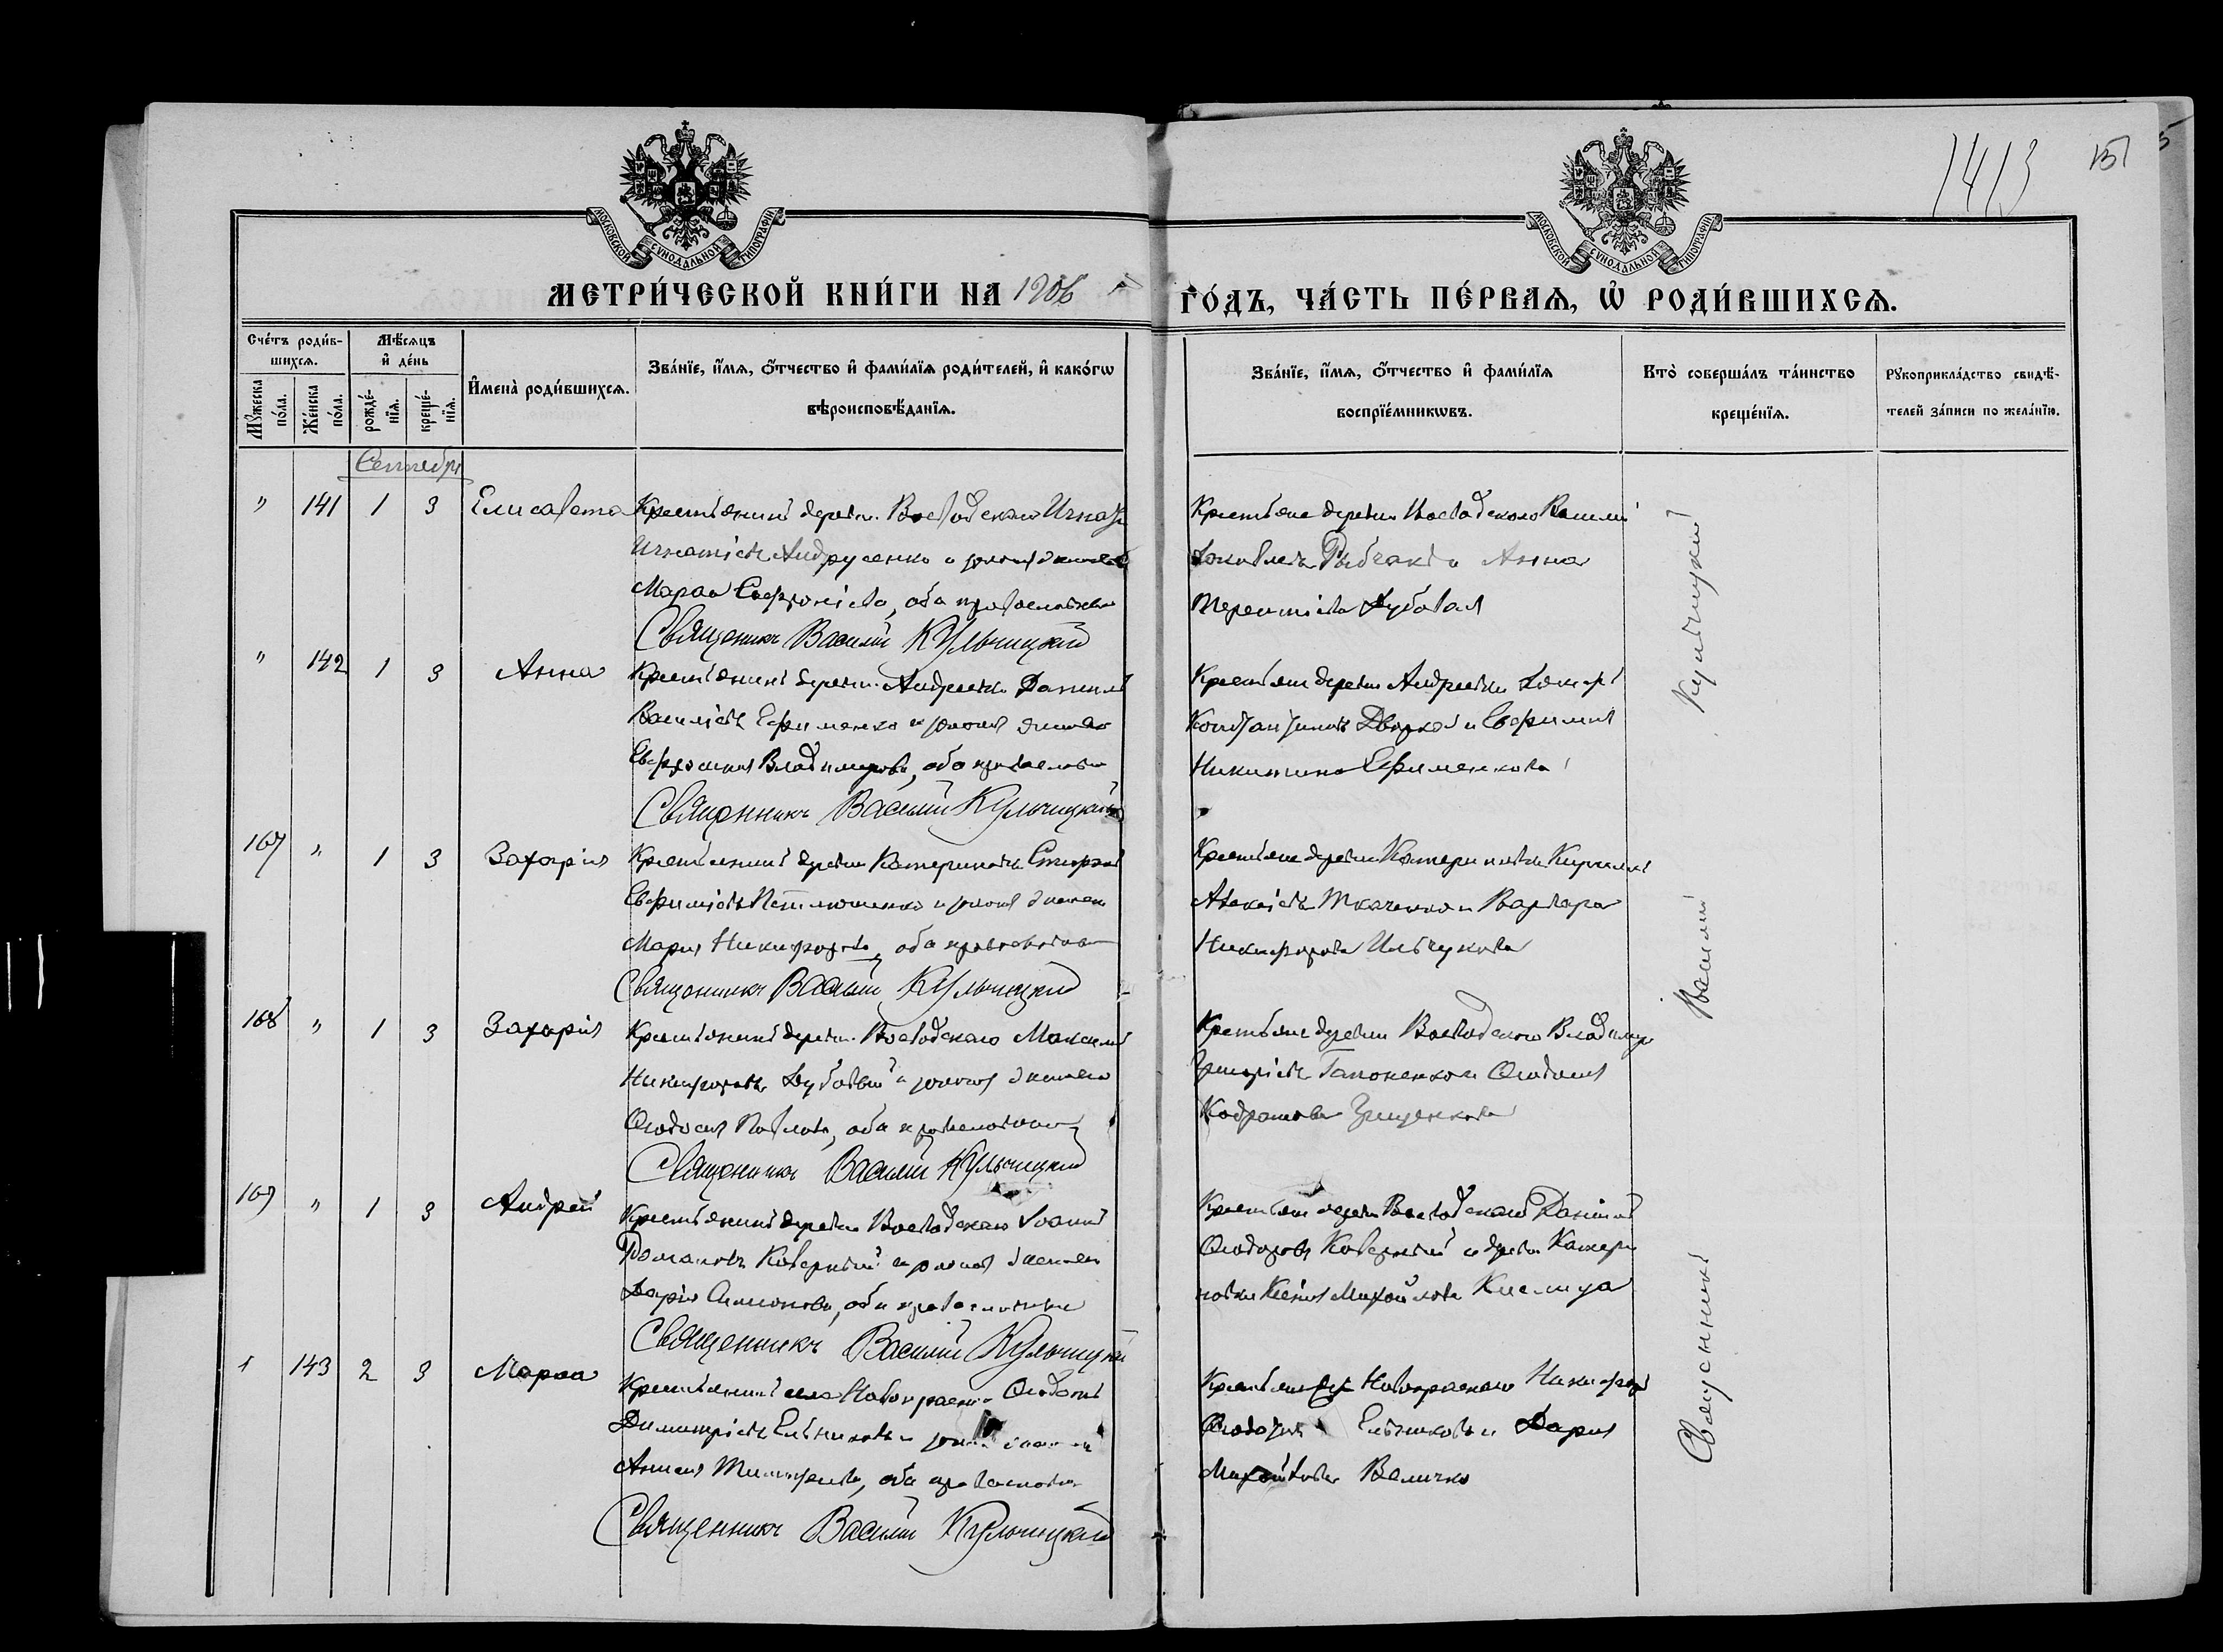 1413
151
5
МОСКОВСКОЙ СѴНОДАЛЬНОЙ ТИПОГРАФІИ
МОСКОВСКОЙ СѴНОДАЛЬНОЙ ТИПОГРАФІИ
МЕТРИ́ЧЕСКОЙ КНИ́ГИ НА 1906 ГО́ДЪ, ЧА́СТЬ ПЕ́РВАѦ, Ѡ РОДИ́ВШИХСѦ.
Сче́тъ роди́вшихсѧ.
Мꙋ́жеска по́ла.
Же́нска по́ла.
Мѣ́сѧцъ и҆ де́нь
рожде́нїѧ.
креще́нїѧ.
И҆мена̀ роди́вшихсѧ.
Зва́нїе, и҆́мѧ, ѻ҆́тчество и҆ фами́лїѧ роди́телей, и҆ како́гѡ
вѣроисповѣ́данїѧ.
Зва́нїе, и҆́мѧ, ѻ҆́тчество и҆ фами́лїѧ
воспрїе́мникѡвъ.
Кто̀ соверша́лъ та́инство
креще́нїѧ.
Рꙋкоприкла́дство свидѣ́телей за́писи по жела́нїю.
Сентябрь
" 141 1 3 Елисавета
Крестьянинъ деревни Воеводскаго
Игнатіевъ Андрусенко и законная жена его
Марѳа Софроніева, оба православные
Священникъ Василій Кульчицкій
Крестьяне деревни Воеводскаго Василій
Яковлевъ Рыбчакъ и Анна
Терентіева Дубовая
" 142 1 3 Анна
Крестьянинъ деревни Андреевки Даніилъ
Василіевъ Ефименко и законная жена его
Евфросинія Владимирова, оба православные
Священникъ Василій Кульчицкій
Крестьяне деревни Андреевки
Константиновъ и Евфимія
Никитина Ефименкова
167 " 1 3 Захарія
Крестьянинъ деревни Катериновки
Евфиміевъ и законная жена его
Марія Никифорова, оба православные
Священникъ Василій Кульчицкій
Крестьяне деревни Катериновки Кириллъ
Ткаченко и Варвара
Никифорова Ильчукова
168 " 1 3 Захарія
Крестьянинъ деревни Воеводскаго Максимъ
Никифоровъ Дубовый и законная жена его
Ѳеодосія Павлова, оба православные
Священникъ Василій Кульчицкій
Крестьяне деревни Воеводскаго Владимиръ
Григорісвъ Гапоненко и Ѳеодосія
Кодратова Грищенкова
169 " 1 3 Андрей
Крестьянинъ деревни Воеводскаго Іоаннъ
Романовъ Коверный и законная жена его
Дарія Симонова, оба православные
Священникъ Василій Кульчицкій
Крестьяне деревни Воеводскаго Даніилъ
Ѳеодоровъ Коверный и деревни Катери
новки Ксенія Михайлова Кислица
" 143 2 3 Марѳа
Крестьянинъ села Новокраснаго
Димитріевъ Ельниковъ и законная жена его
Анисія Тимофеева, оба православные
Священникъ Василій Кульчицкій
Крестьяне села Новокраснаго Никифоръ
Ельниковъ и Дарія
Михайлова Величко
Священникъ Василій Кульчицкій